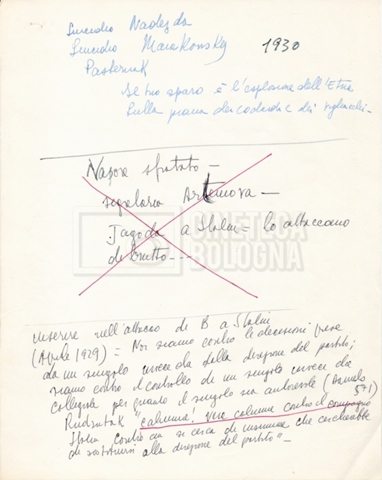 Suicidio Nadezda
Suicidio Maiakonsky 1930
Pasternak
Il tuo sparo è l'esplosione dell'Etna
sulla piana dei codardi e dei vigliacchi -
Nasce sputato -
segretaria Artemova -
Jagoda a Stalin = lo attaccano
di brutto - - -
CINETECA
BOLOGNA
inserire nell'attacco di B a Stalin
(Aprile 1929) = Noi siamo contro le decisioni prese
da un singolo invece da dalla direzione del partito;
siamo contro il controllo di un singolo invece da
collegiale per quanto il singolo sia autorevole (Daniels
591)
Rudzutak "calunnia! Una calunnia contro il compagno
Stalin contro cui si cerca di insinuare che cercherebbe
di sostituirsi alla direzione del partito" -